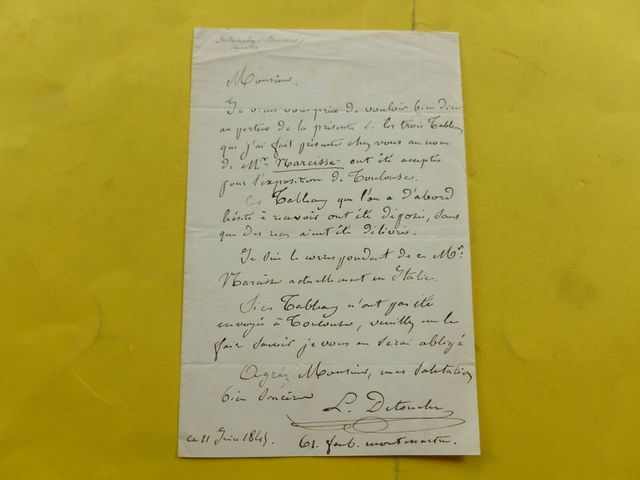 Monsieur.
Je viens vous prier de vouloir bien dire
au porteur de la présente si les trois Tableaux
que j'ai fait présenter chez vous au nom
de Mr. Narcisse ont été acceptés
pour l'exposition de Toulouse.
Ces Tableaux que l'on a d'abord
hésité à recevoir ont été déposés, sans
que des reçus aient été délivrés.
Je suis le correspondant de ce Mr.
Narcisse actuellement en Italie.
Si ces Tableaux n'ont pas été
envoyés à Toulouse, veuillez me le
faire savoir je vous en serai obligé
Agréez Monsieur, mes salutations
bien sincères
L. Detouche
ce 11 Juin 1845. 61. faub. montmartre.